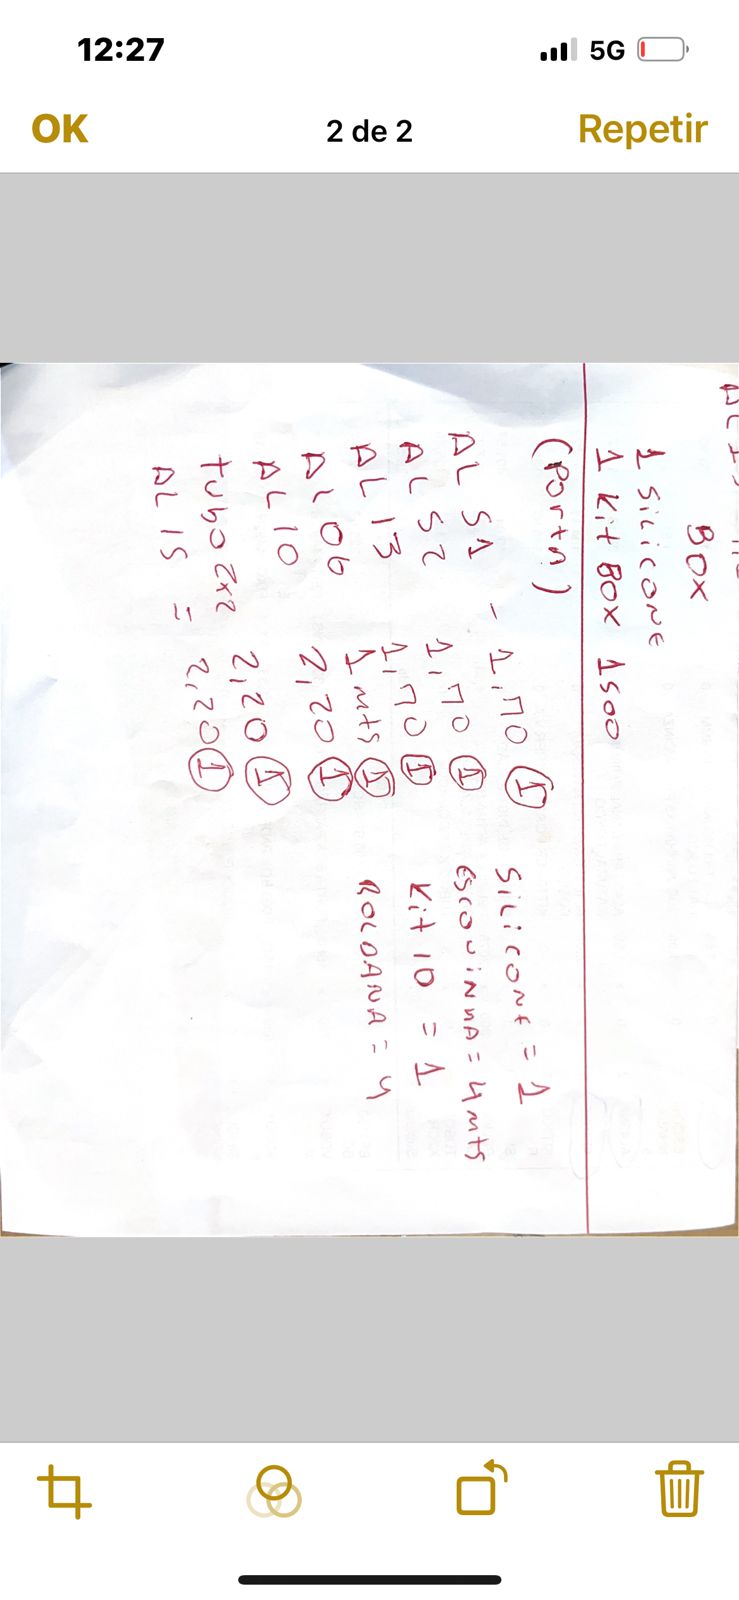 12:27
5G
OK
2 de 2
Repetir
BOX
1 SiLiCONE
1 Kit BOX 1500
(PORTA)
AL 51 - 1,70 1
AL 52 1,70 1
AL 13 1,70 1
AL 06 1 mts 1
AL 10 2,20 1
tubo 2x2 2,20 1
AL 15 = 2,20 1
SiLiCONE = 1
EsCOViNHA = 4 mts
Kit 10 = 1
ROLDANA = 4